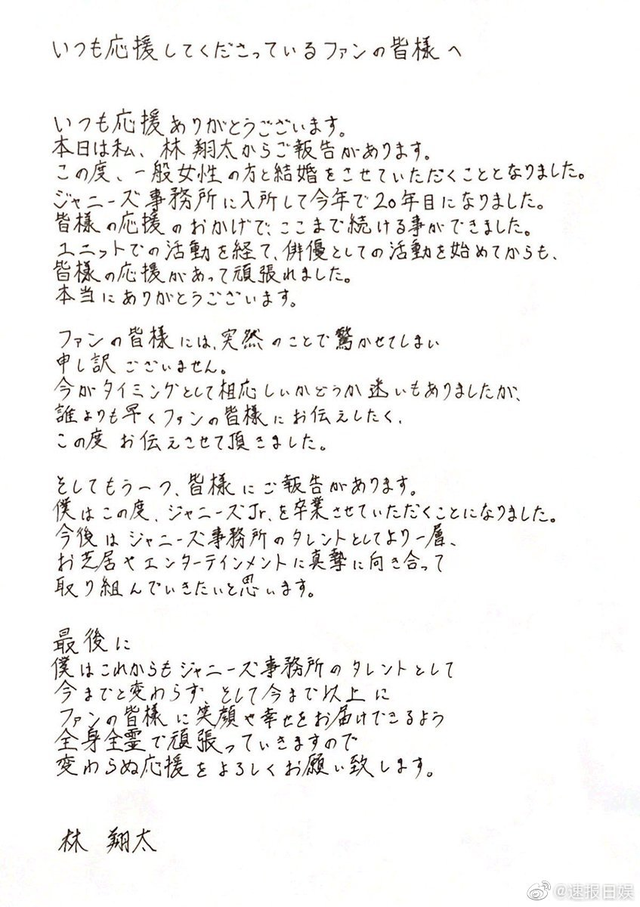 いつも応援してくださっているファンの皆様へ
いつも応援ありがとうございます。
本日は私、林 翔太からご報告があります。
この度、一般女性の方と結婚をさせていただくこととなりました。
ジャニーズ事務所に入所して今年で20年目になりました。
皆様の応援のおかげで、ここまで続ける事ができました。
ユニットでの活動を経て、俳優としての活動を始めてからも、
皆様の応援があって頑張れました。
本当にありがとうございます。
ファンの皆様には、突然のことで驚かせてしまい
申し訳ございません。
今がタイミングとして相応しいかどうか迷いもありましたが、
誰よりも早くファンの皆様にお伝えしたく、
この度お伝えさせて頂きました。
そしてもう一つ、皆様にご報告があります。
僕はこの度、ジャニーズJr.を卒業させていただくことになりました。
今後はジャニーズ事務所のタレントとしてより一層、
お芝居やエンターテインメントに真摯に向き合って
取り組んでいきたいと思います。
最後に
僕はこれからもジャニーズ事務所のタレントとして
今までと変わらず、そして今まで以上に
ファンの皆様に笑顔や幸せをお届けできるよう
全身全霊で頑張っていきますので
変わらぬ応援をよろしくお願い致します。
林 翔太
@速报日娱